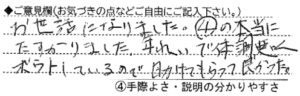 ◆ご意見欄(お気づきの点などご自由にご記入下さい。)
お世話になりました。④の本当に
たすかりました。年れいで体調悪く
ボラしているので助けてもらって良かった。
④手際よさ・説明の分かりやすさ